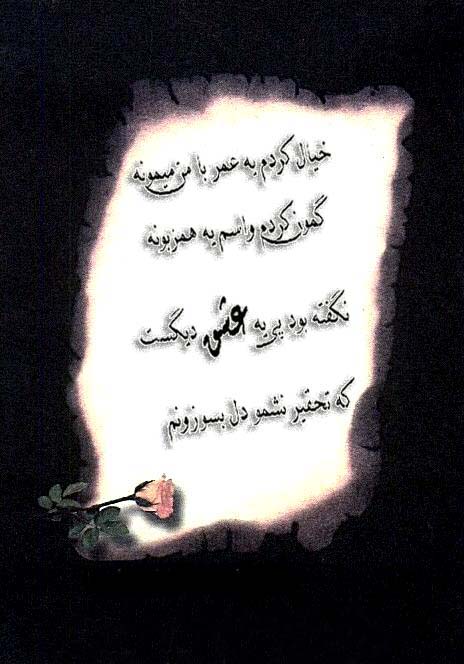 خیال کردم یه عمر با من میمونه
گمون کردم واسم یه همزبونه
نگفته بود پی یه عشق دیگست
که تحقیر نشمو دل بسوزونم